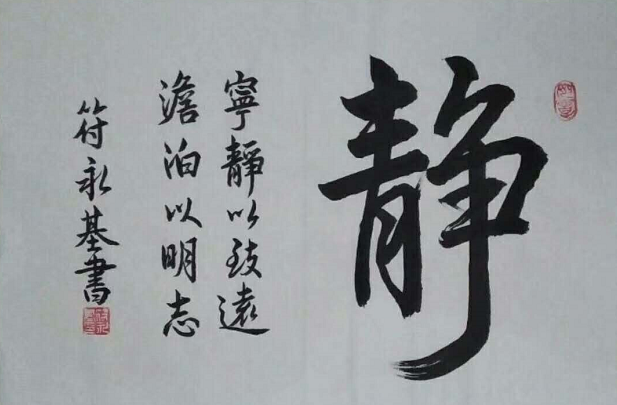 静
寧靜以致遠
澹泊以明志
符永基書